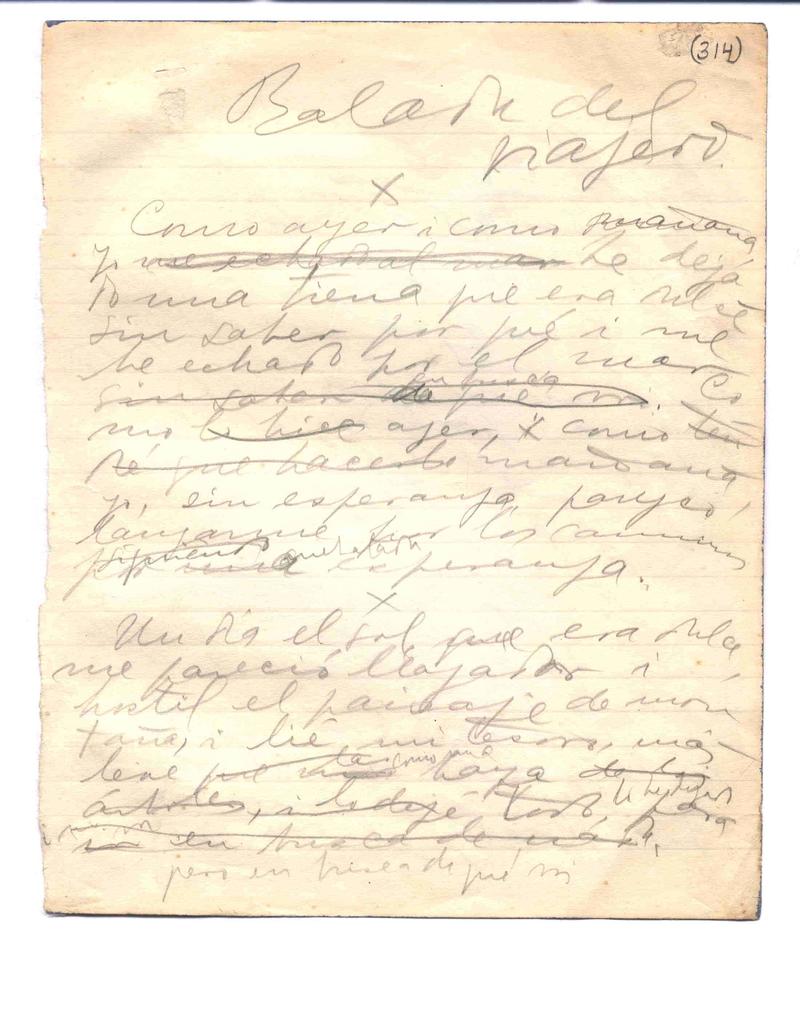 (314)
Balada del
viajero.
x
Como ayer i como mañana
yo me he echado al mar he deja
do una tierra que era dulce
sin saber por qué i me
he echado por el mar
sin saber en busca de qué voi. Co
mo lo hice ayer, i como ten
dré que hacerlo mañana,
yo, sin esperanza,
lanzarme por los caminos
siguiendo una esperanza.
x
Un día el sol que era dulce,
me pareció llagador i
hostil el paisaje de mon
taña, i lié mi tesoro, más
leve que como una hoja
árboles, i lo dejé todo, para
en busca de
pero en busca de qué voi